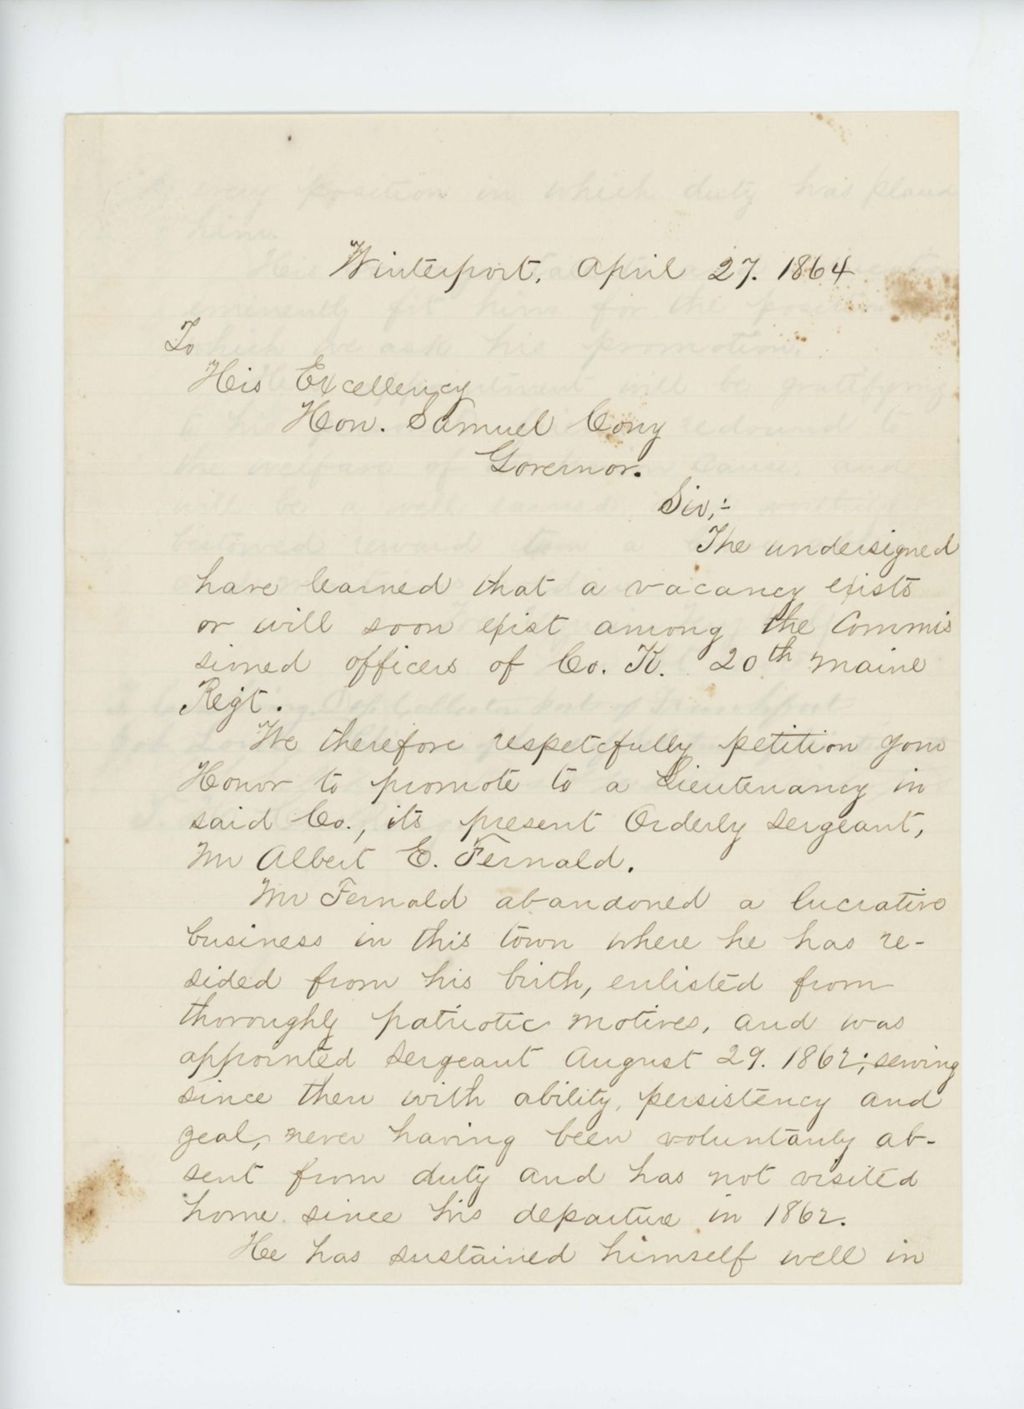 Winterport, April 27. 1864
To
His Excellency
Hon. Samuel Cony
Governor.
Sir,:
The undersigned
have learned that a vacancy exists
or will soon exist among the Commis
sioned officers of Co. K. 20th Maine
Regt.
We therefore respetcfully petition your
Honor to promote to a Lieutenancy in
said Co., its present Orderly Sergeant,
Mr Albert E. Fernald.
Mr Fernald abandoned a lucrative
business in this town where he has re-
sided from his birth, enlisted from
thoroughly patriotic motives, and was
appointed Sergeant August 29. 1862; serving
since then with ability, persistency and
zeal, never having been voluntarily ab-
sent from duty and has not visited
home since his departure in 1862.
He has sustained himself well in